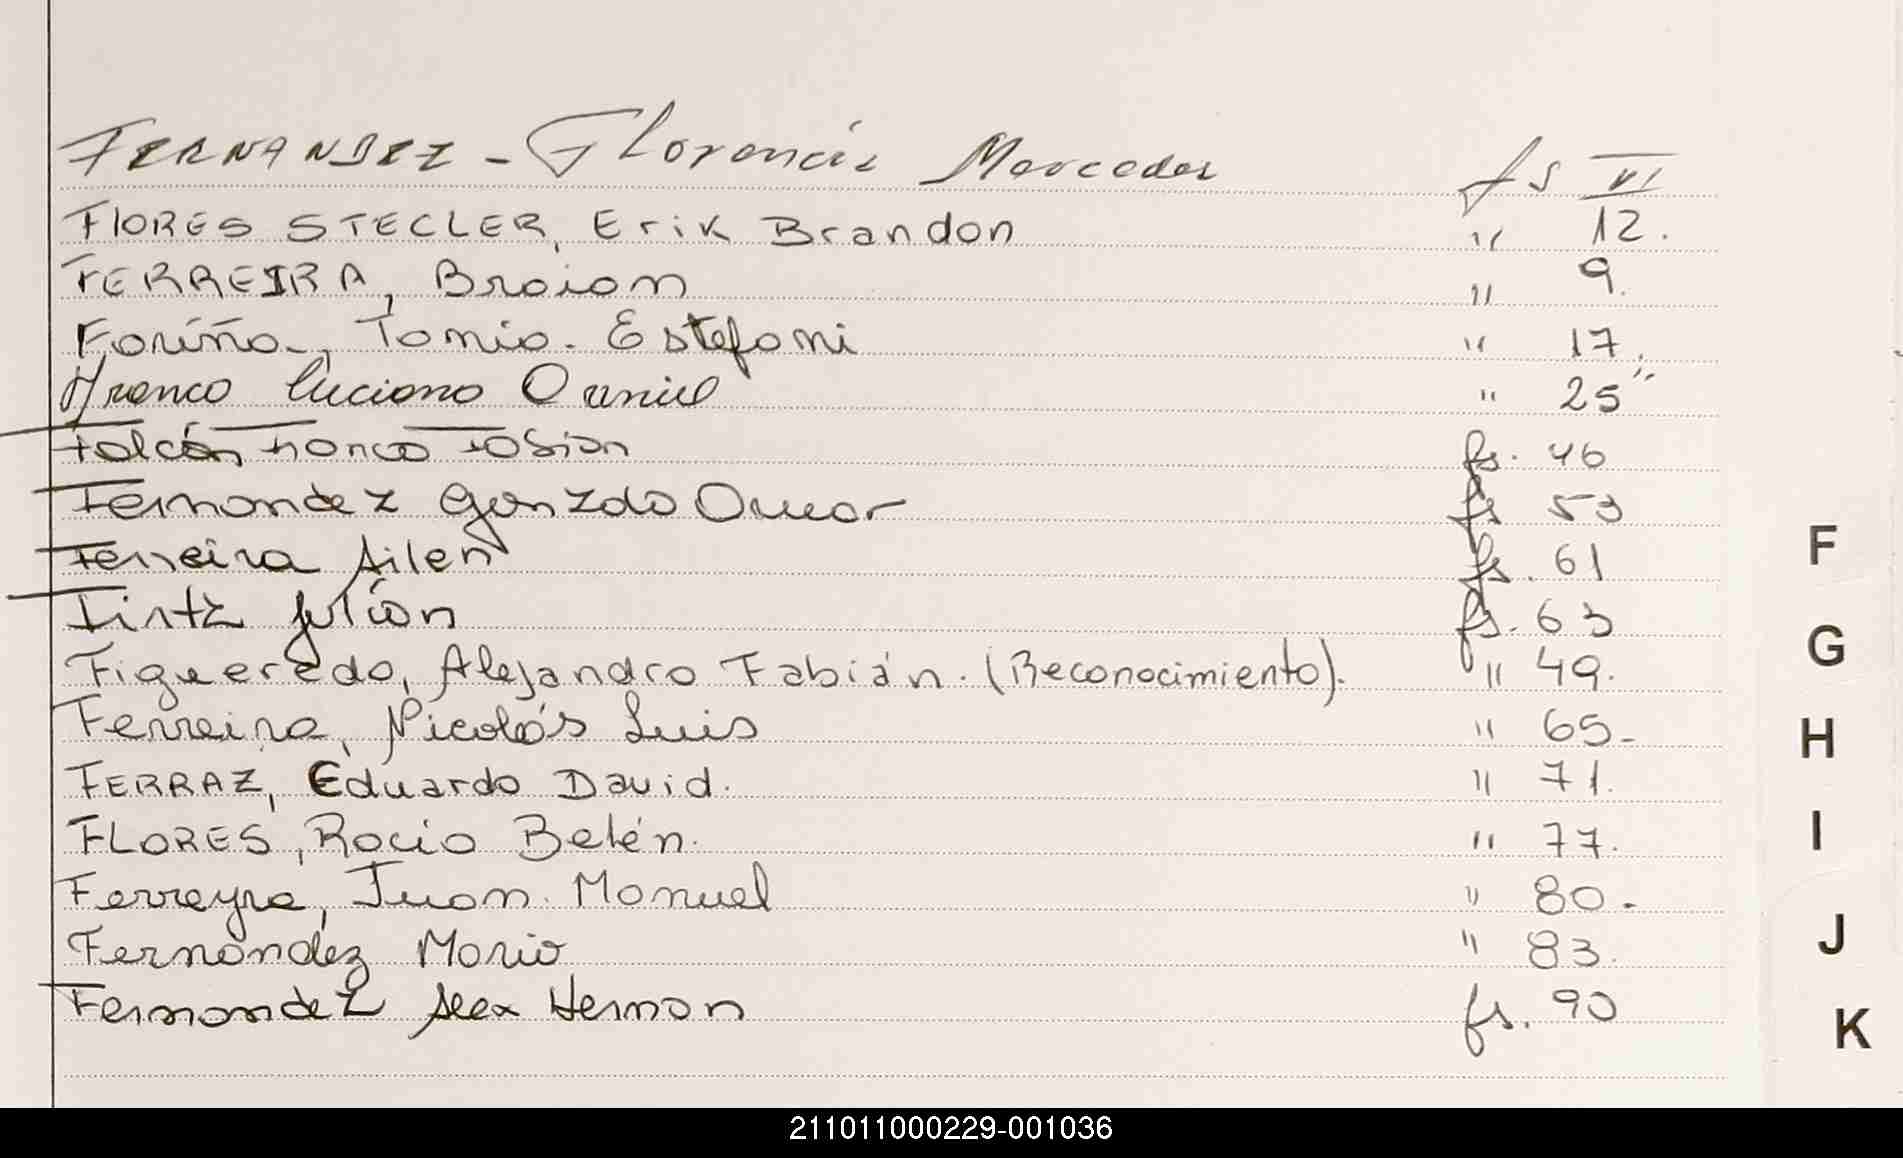 FERNANDEZ - Florencia Mercedes fs VI
FLORES STECLER, Erik Brandon " 12.
FERREIRA, Braian " 9.
Fariña, Tania. Estefani " 17.
Franco Luciano Daniel " 25"
Falcón Franco Fabian fs. 46
Fernandez Gonzalo Omar fs 53
Ferreira Ailen fs. 61
Fintz Julián fs. 63
Figueredo, Alejandro Fabián. (Reconocimiento). " 49.
Ferreira, Nicolás Luis " 65-
FERRAZ, Eduardo David. " 71.
FLORES, Rocio Belén. " 77.
Ferreyra, Juan Manuel " 80.
Fernández Mario " 83.
Fernandez Alex Hernan fs. 90
F
G
H
I
J
K
211011000229-001036